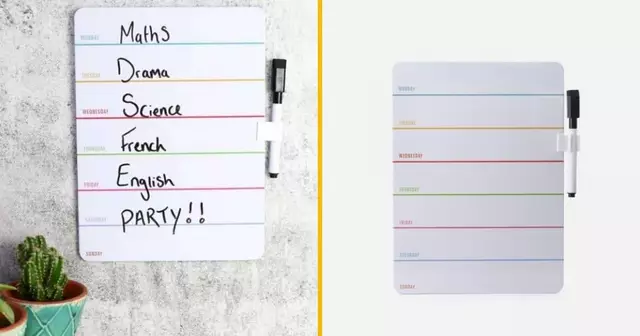 MONDAY Maths
TUESDAY Drama
WEDNESDAY Science
THURSDAY French
FRIDAY English
SATURDAY PARTY!!
SUNDAY
MONDAY
TUESDAY
WEDNESDAY
THURSDAY
FRIDAY
SATURDAY
SUNDAY